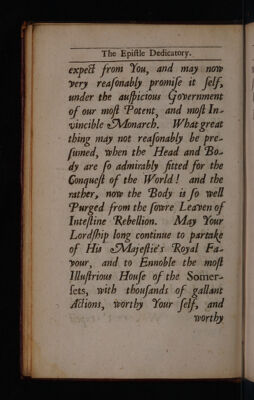 The Epistle Dedicatory.
expect from You, and may now
very reasonably promise it self,
under the auspicious Government
of our most Potent, and most In-
vincible Monarch. What great
thing may not reasonably be pre-
sumed, when the Head and Bo-
dy are so admirably fitted for the
Conquest of the World! and the
rather, now the Body is so well
Purged from the sowre Leaven of
Intestine Rebellion. May Your
Lordship long continue to partake
of His Majestie's Royal Fa-
vour, and to Ennoble the most
Illustrious House of the Somer-
sets, with thousands of gallant
Actions, worthy Your self, and
worthy